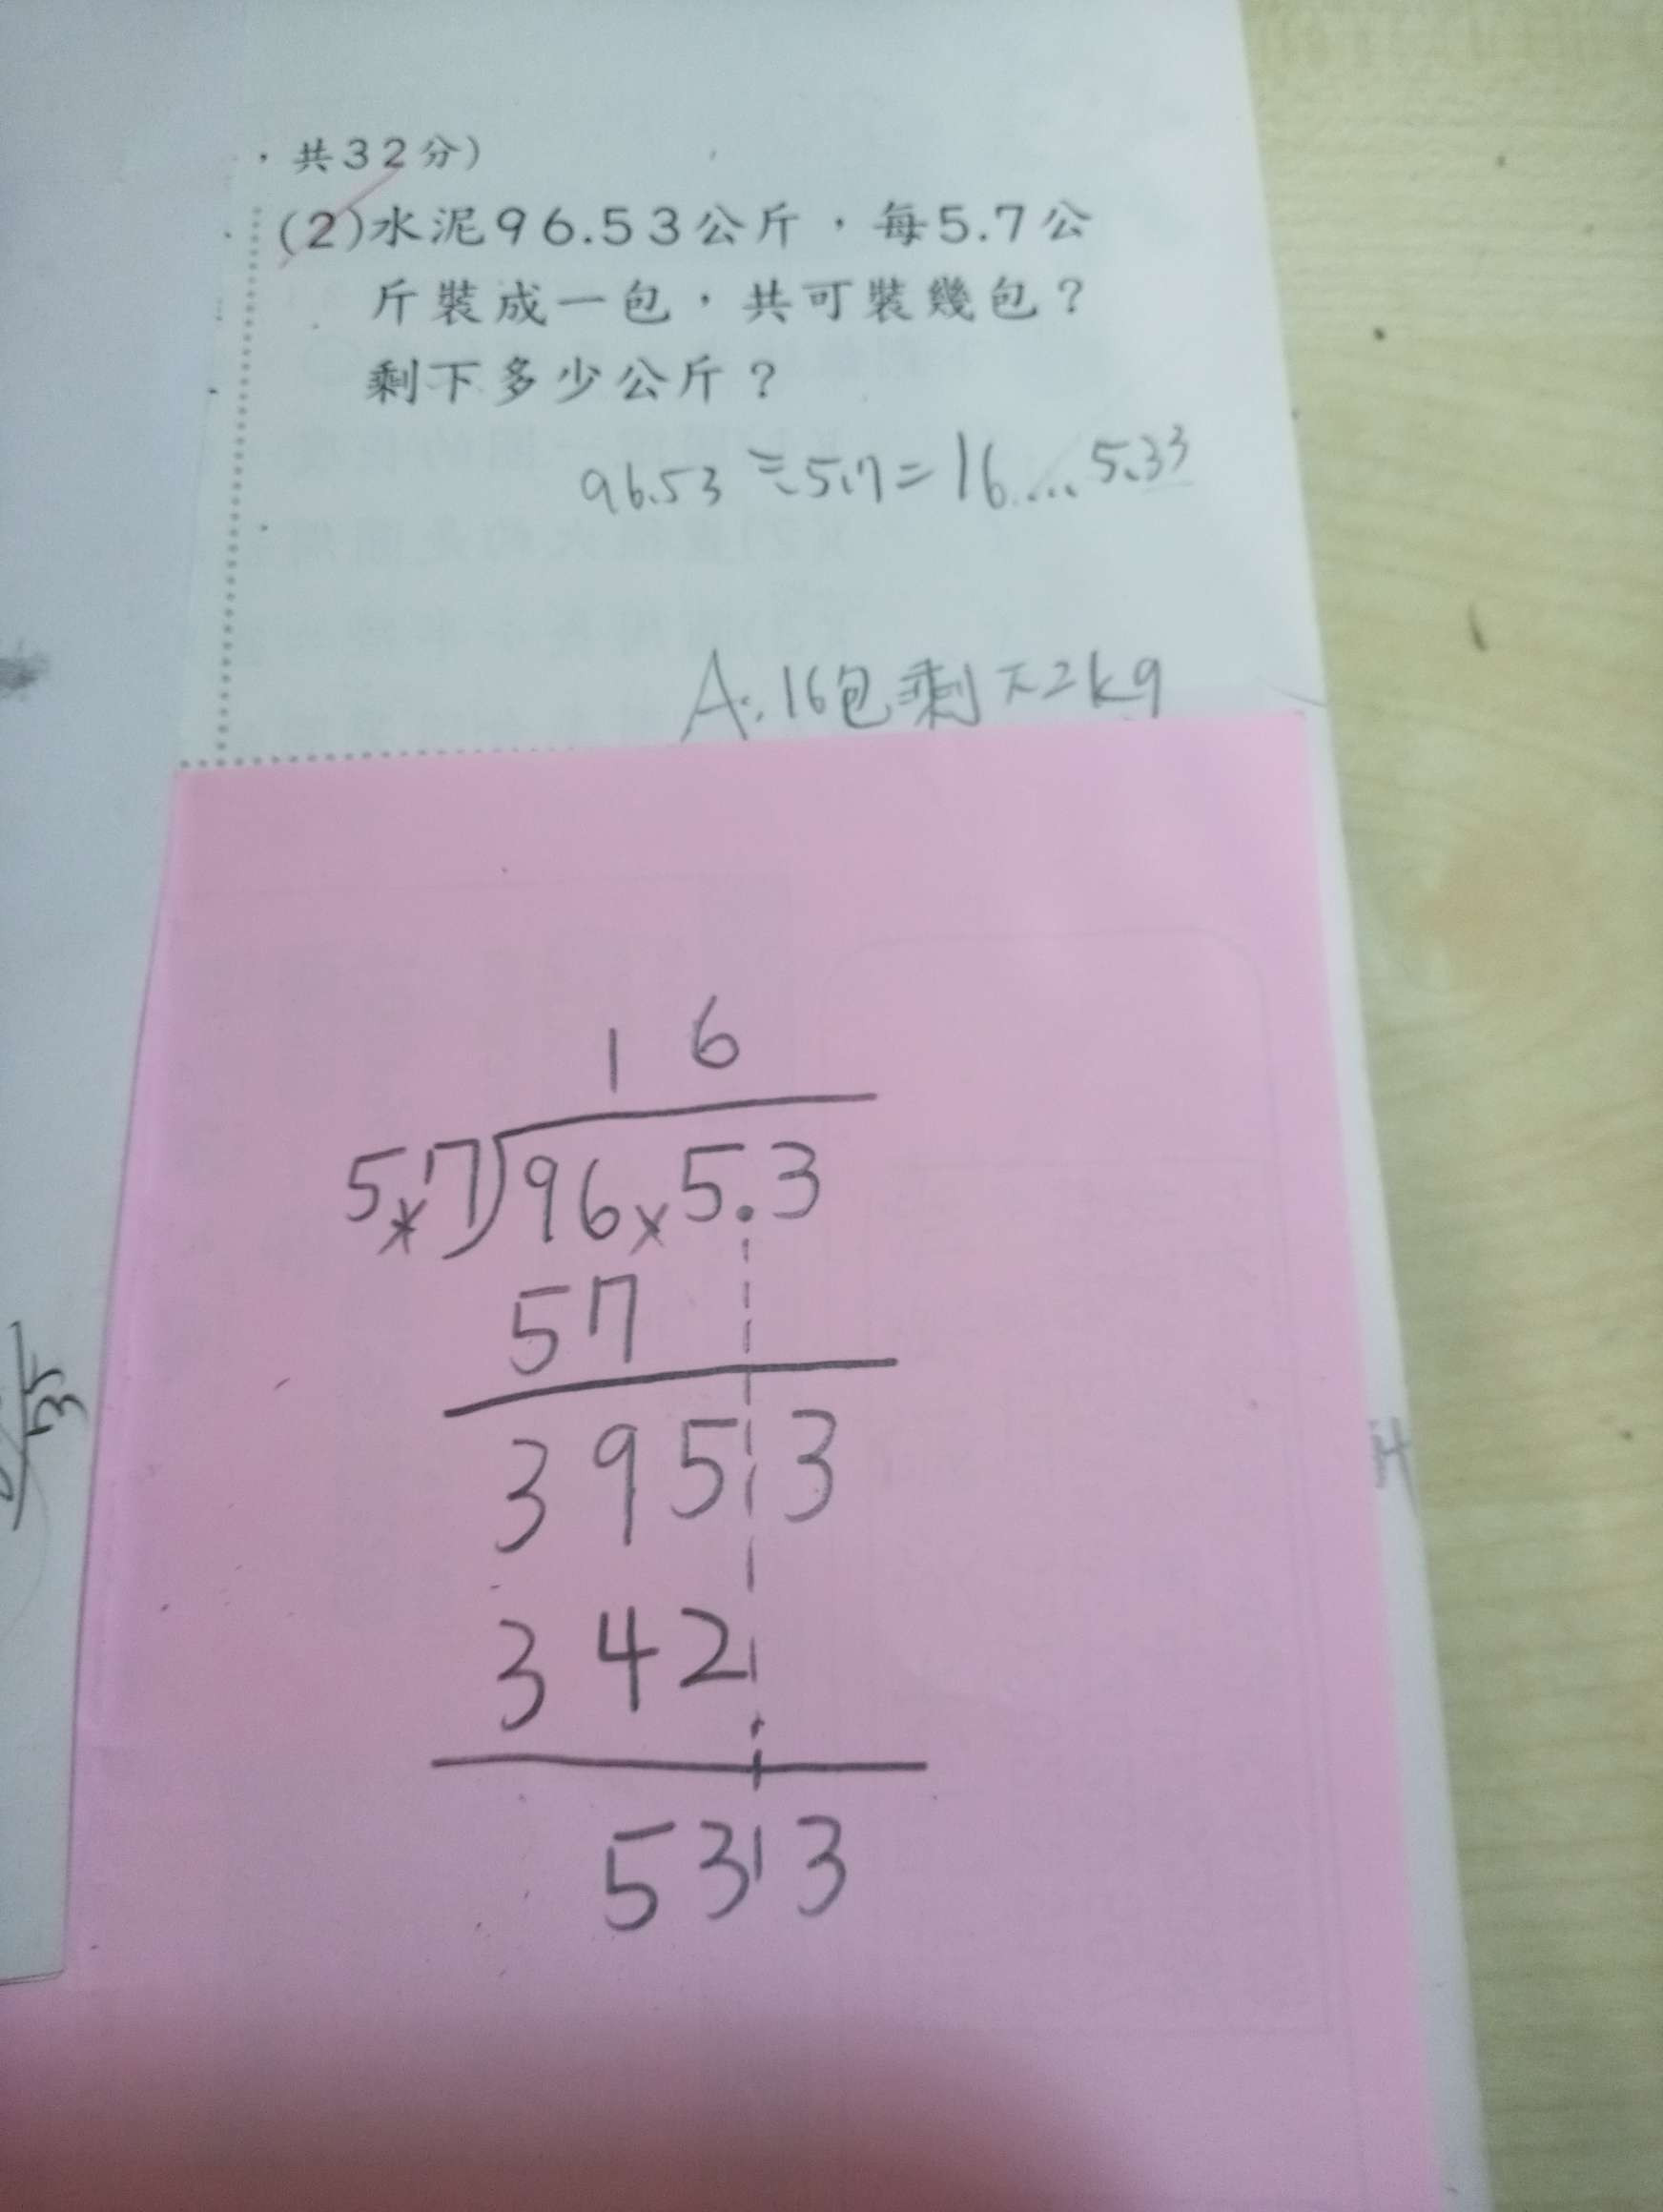 ，共32分）
(2)水泥96.53公斤，每5.7公
斤裝成一包，共可裝幾包？
剩下多少公斤？
96.53÷5.7=16...5.33
A:16包剩下2kg
16
5.7)965.3
57
3953
342
533